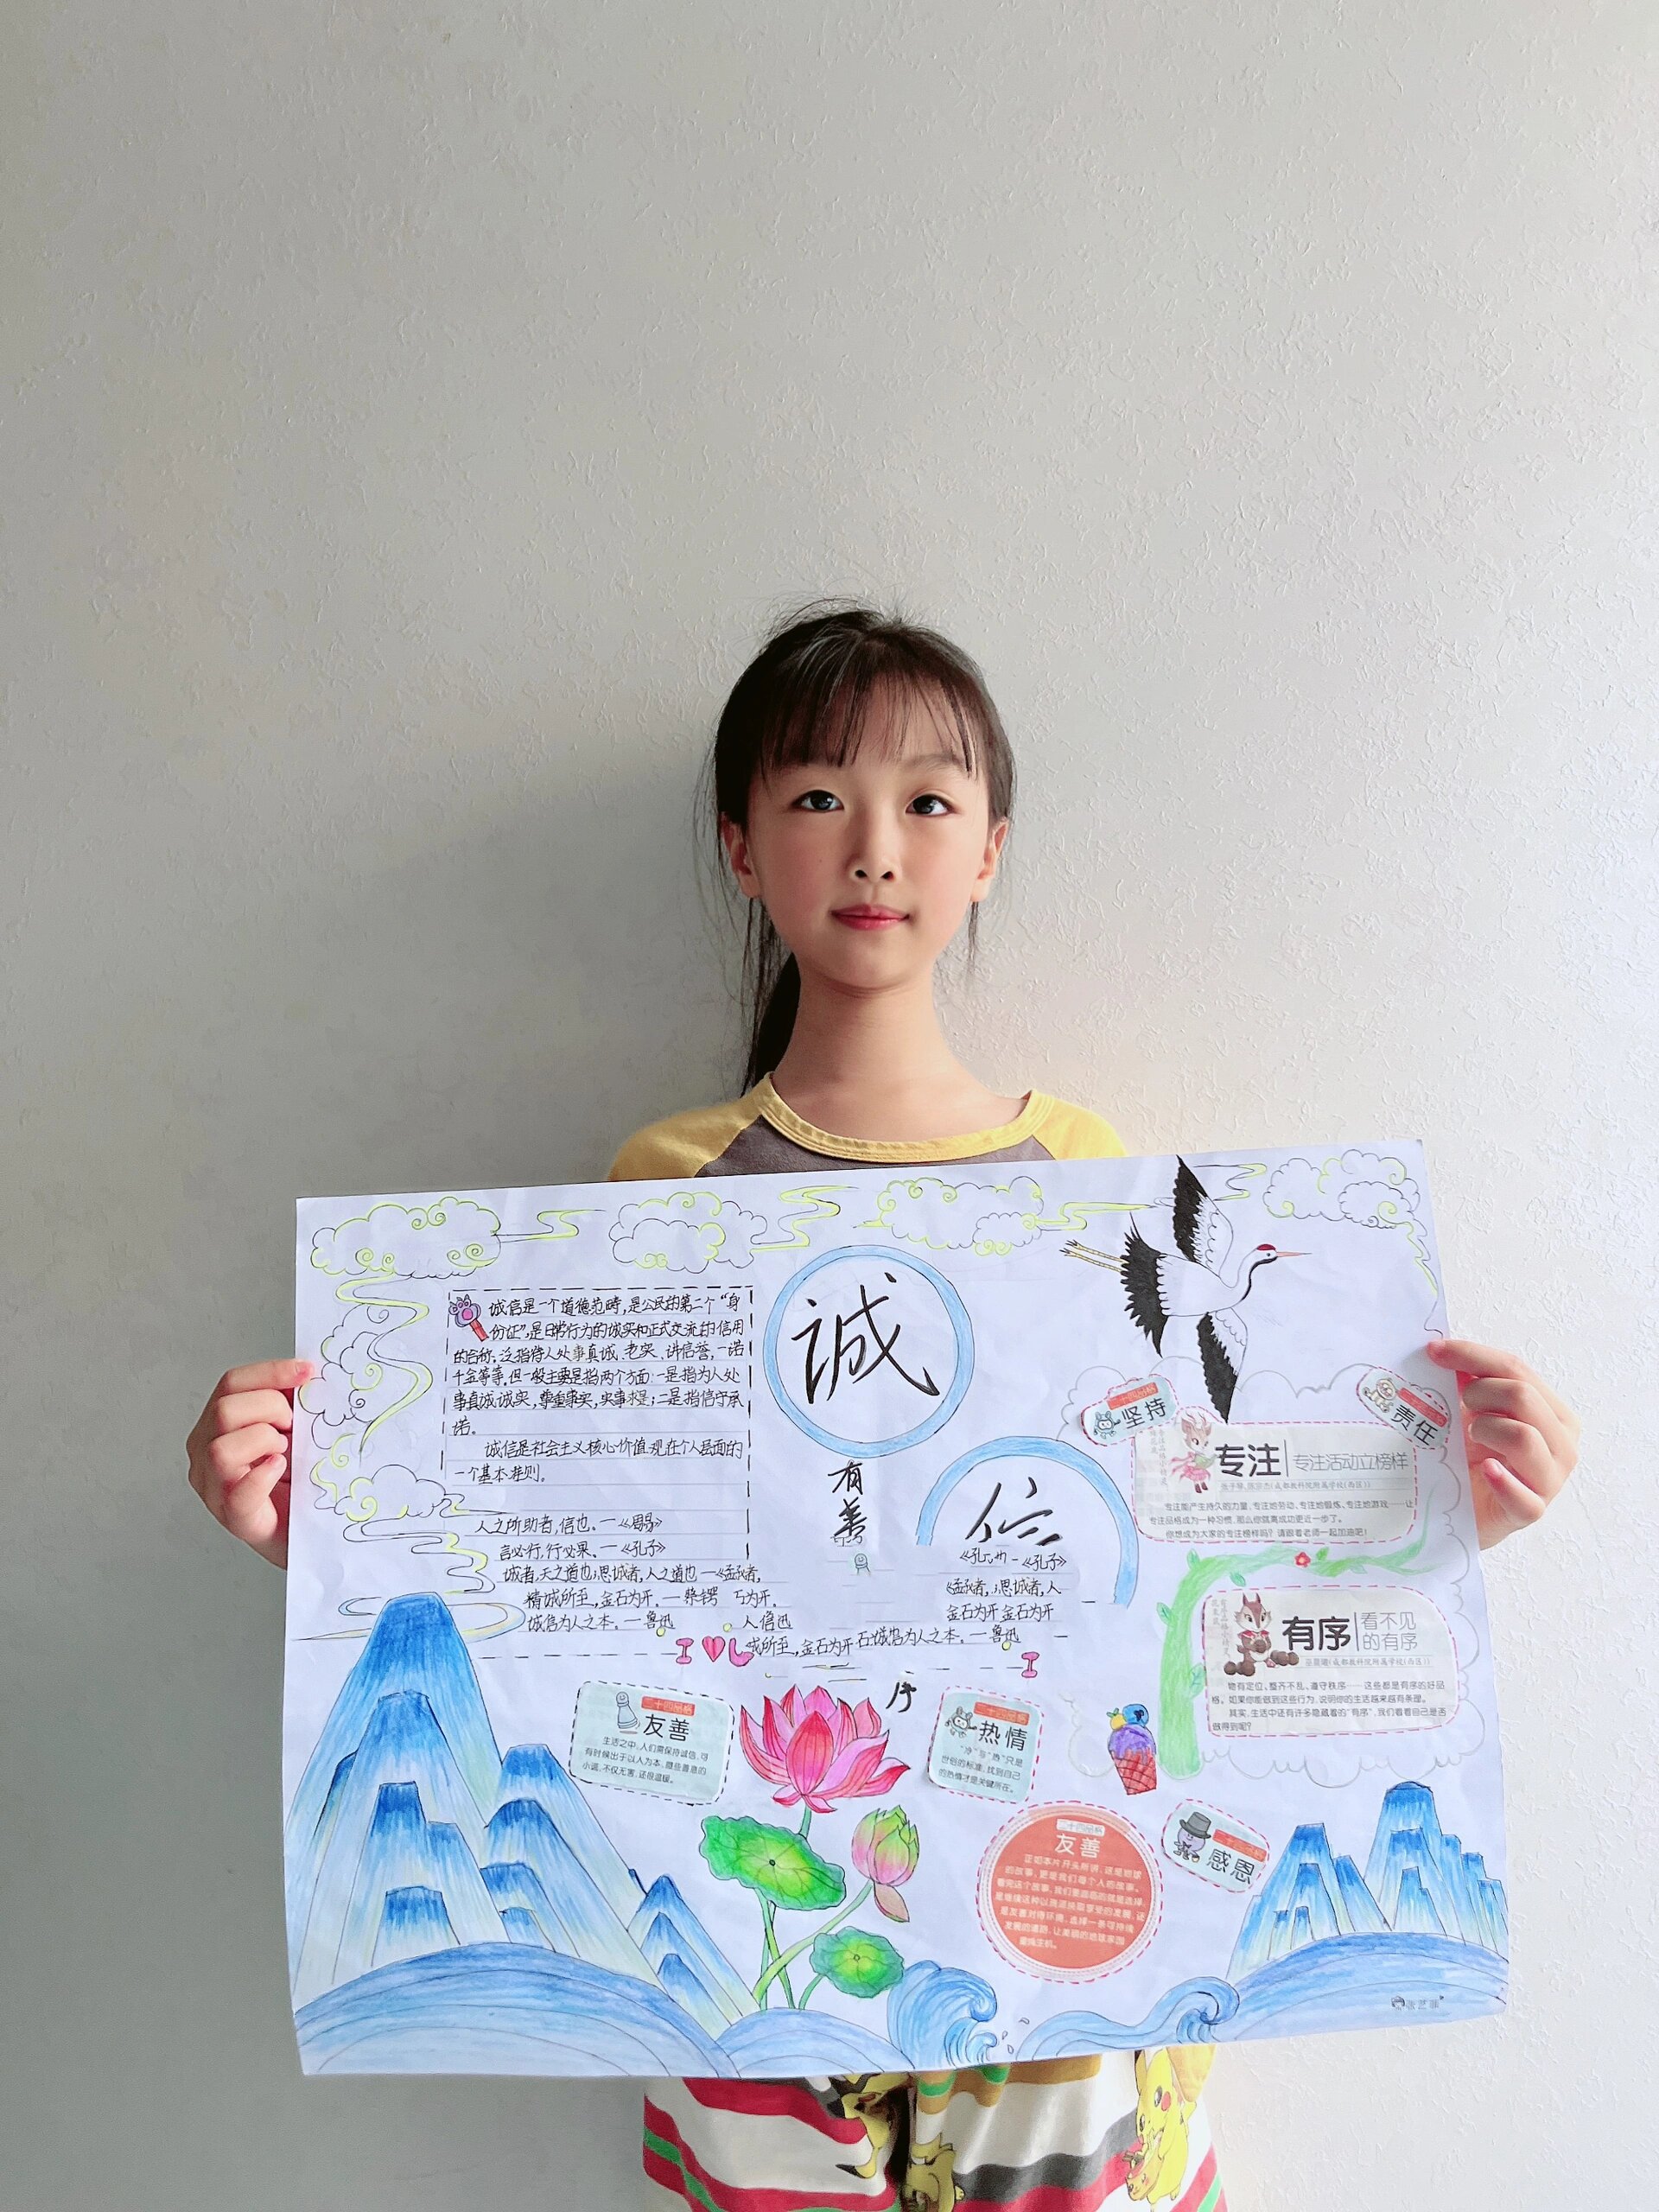 誠
信
诚信是一个道德范畴,是公民的第二个“身
份证”,是日常行为的诚实和正式交流的信用
的合称,泛指待人处事真诚、老实、讲信誉,一诺
千金等等,但一般主要是指两个方面:一是指为人处
事真诚诚实,尊重事实,实事求是;二是指信守承
诺。
诚信是社会主义核心价值观在个人层面的
一个基本准则。
人之所助者,信也。—《周易》
言必行,行必果。—《孔子》
诚者,天之道也;思诚者,人之道也—《孟子》
精诚所至,金石为开。—蔡锷
诚信为人之本。—鲁迅
金石为开金石为开
诚所至,金石为开
诚信为人之本。—鲁迅
有
善
序
坚持
责任
专注
专注活动立榜样
专注能产生持久的力量,专注地劳动、专注地锻炼、专注地游戏……让
专注品格成为一种习惯,那么你就离成功更近一步了。
你想成为大家的专注榜样吗?请跟着老师一起加油吧!
有序
看不见
的有序
物有定位,整齐不乱,遵守秩序……这些都是有序的好品
格。如果你能做到这些行为,说明你的生活越来越有条理。
其实,生活中还有许多隐藏着的“有序”,我们看看自己是否
做得到呢?
二十四品格
友善
生活之中,人们需保持诚信,可
有时候出于以人为本,撒些善意的
小谎,不仅无害,还很温暖。
二十四品格
热情
“冷”与“热”只是
世俗的标准,找到自己
的热情才是关键所在。
二十四品格
友善
二十四品格
感恩